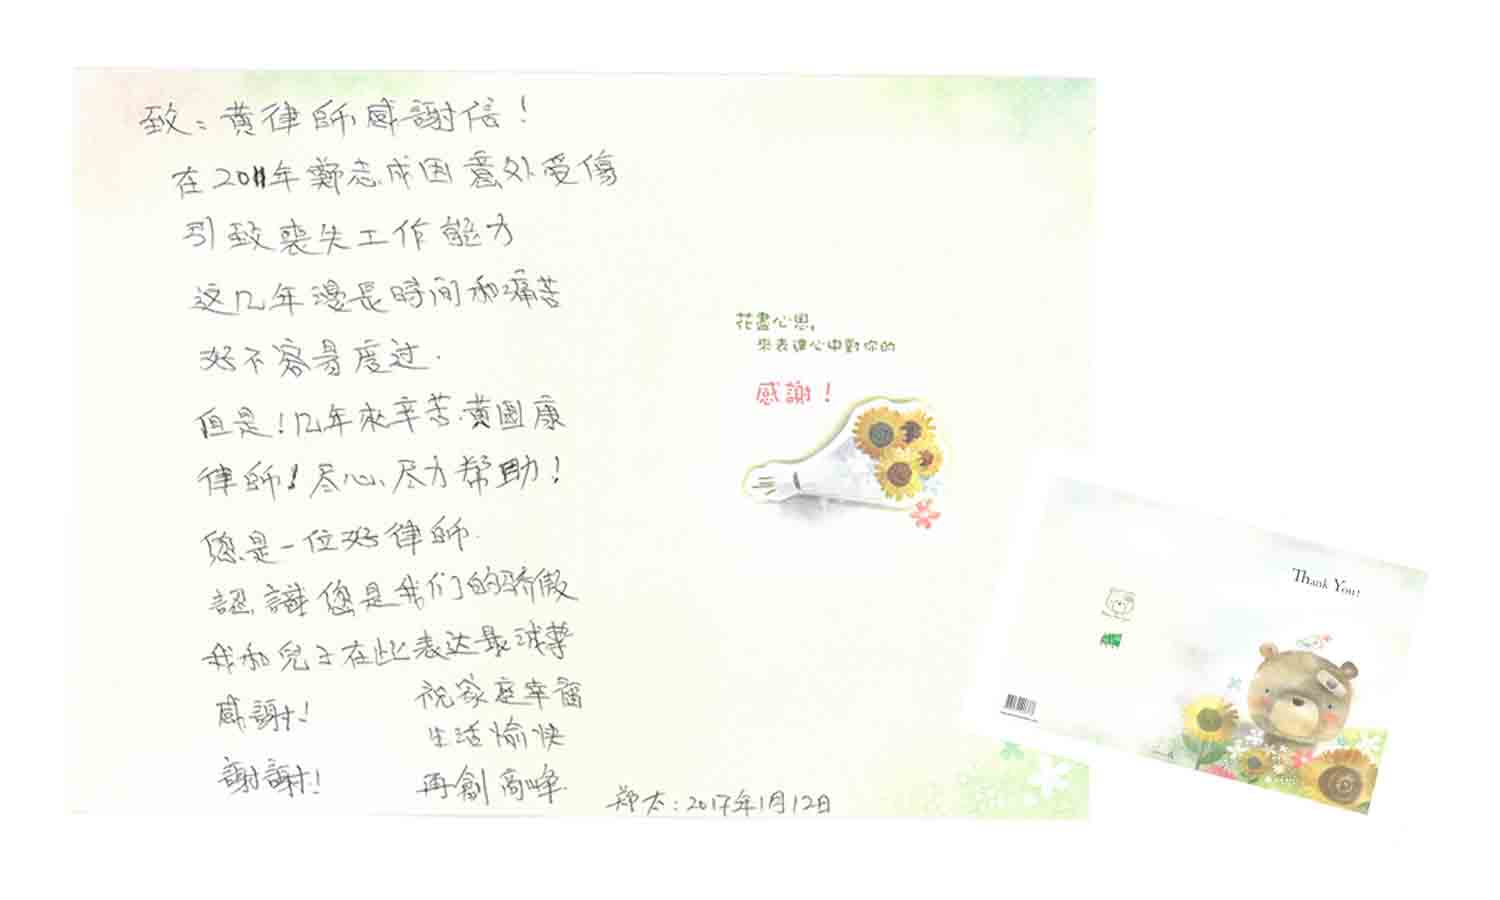 致：黄律師感謝信！
在2011年鄭志成因意外受傷
引致喪失工作能力
这几年漫長時间和痛苦
好不容易度过.
但是！几年來辛苦.黄國康
律師！尽心、尽力帮助！
您是一位好律師.
認識您是我们的骄傲
我和兒子在此表达最誠摯
感謝！
謝謝！
祝家庭幸福
生活愉快
再創高峰
郑太：2017年1月12日
花盡心思，
來表達心中對你的
感謝！
Thank You!